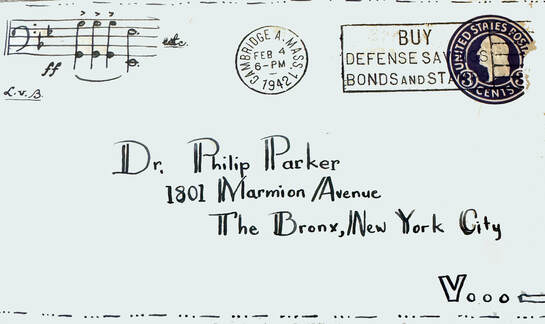 etc.
ff
L.v.B.
CAMBRIDGE A. MASS.
FEB 4
6-PM
1942
BUY
DEFENSE SAV
BONDS AND STA
UNITED STATES POSTAGE
3 3
CENTS
Dr. Philip Parker
1801 Marmion Avenue
The Bronx, New York City
Vooo